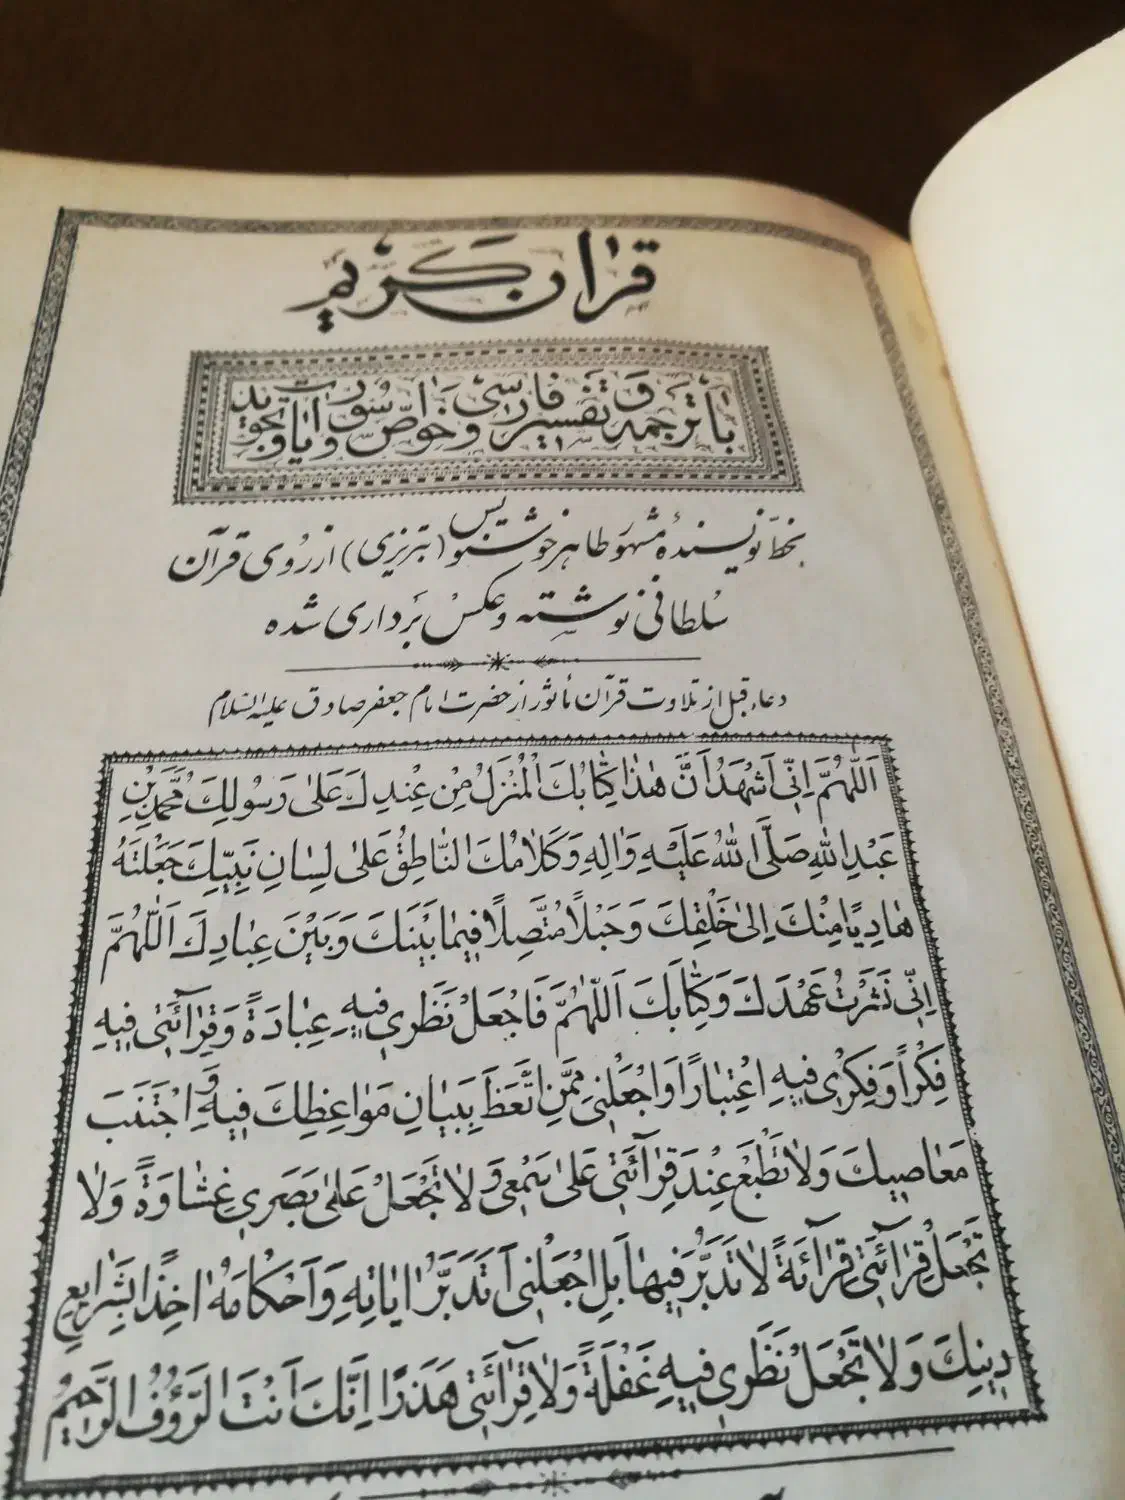 قرآن کریم
با ترجمه و تفسیر فارسی و خواصّ سُوَر و آیات و تجوید
بخطّ نویسندهٔ مشهور طاهر خوشنویس (تبریزی) از روی قرآن
سُلطانی نوشته و عکس بَرداری شده
دعاء قبل از تلاوت قرآن مأثور از حضرت امام جعفر صادق علیه السلام
اَللّٰهُمَّ اِنّى اَشْهَدُ اَنَّ هٰذٰا كِتٰابُكَ الْمُنْزَلُ مِنْ عِنْدِكَ عَلىٰ رَسُولِكَ مُحَمَّدِ بْنِ
عَبْدِ اللهِ صَلَّى اللهُ عَلَيْهِ وَاٰلِهِ وَكَلٰامُكَ النّٰاطِقُ عَلىٰ لِسٰانِ نَبِيِّكَ جَعَلْتَهُ
هٰادِيًا مِنْكَ اِلىٰ خَلْقِكَ وَحَبْلًا مُتَّصِلًا فيمٰا بَيْنَكَ وَبَيْنَ عِبٰادِكَ اَللّٰهُمَّ
اِنّى نَشَرْتُ عَهْدَكَ وَكِتٰابَكَ اَللّٰهُمَّ فَاجْعَلْ نَظَرى فيهِ عِبٰادَةً وَقِرٰآئَتى فيهِ
فِكْرًا وَفِكْرى فيهِ اعْتِبٰارًا وَاجْعَلْنى مِمَّنِ اتَّعَظَ بِبَيٰانِ مَوٰاعِظِكَ فيهِ وَاجْتَنَبَ
مَعٰاصيكَ وَلٰا تَطْبَعْ عِنْدَ قِرٰآئَتى عَلىٰ سَمْعى وَلٰا تَجْعَلْ عَلىٰ بَصَرى غِشٰاوَةً وَلٰا
تَجْعَلْ قِرٰآئَتى قِرٰآئَةً لٰا تَدَبُّرَ فيهٰا بَلِ اجْعَلْنى اَتَدَبَّرُ اٰيٰاتِهِ وَاَحْكٰامَهُ اٰخِذًا بِشَرٰايِعِ
دينِكَ وَلٰا تَجْعَلْ نَظَرى فيهِ غَفْلَةً وَلٰا قِرٰآئَتى هَذَرًا اِنَّكَ اَنْتَ الرَّؤُفُ الرَّحيمُ